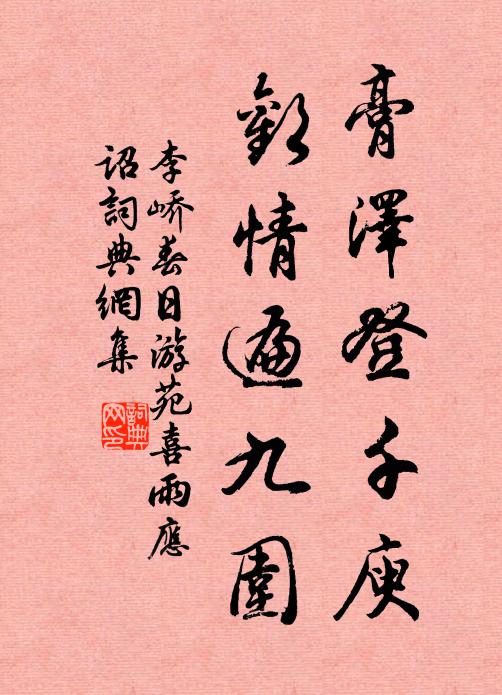 膏澤登千庾
歡情遍九圍
李嶠春日游苑喜雨應
詔詞典網集
詞典
网印